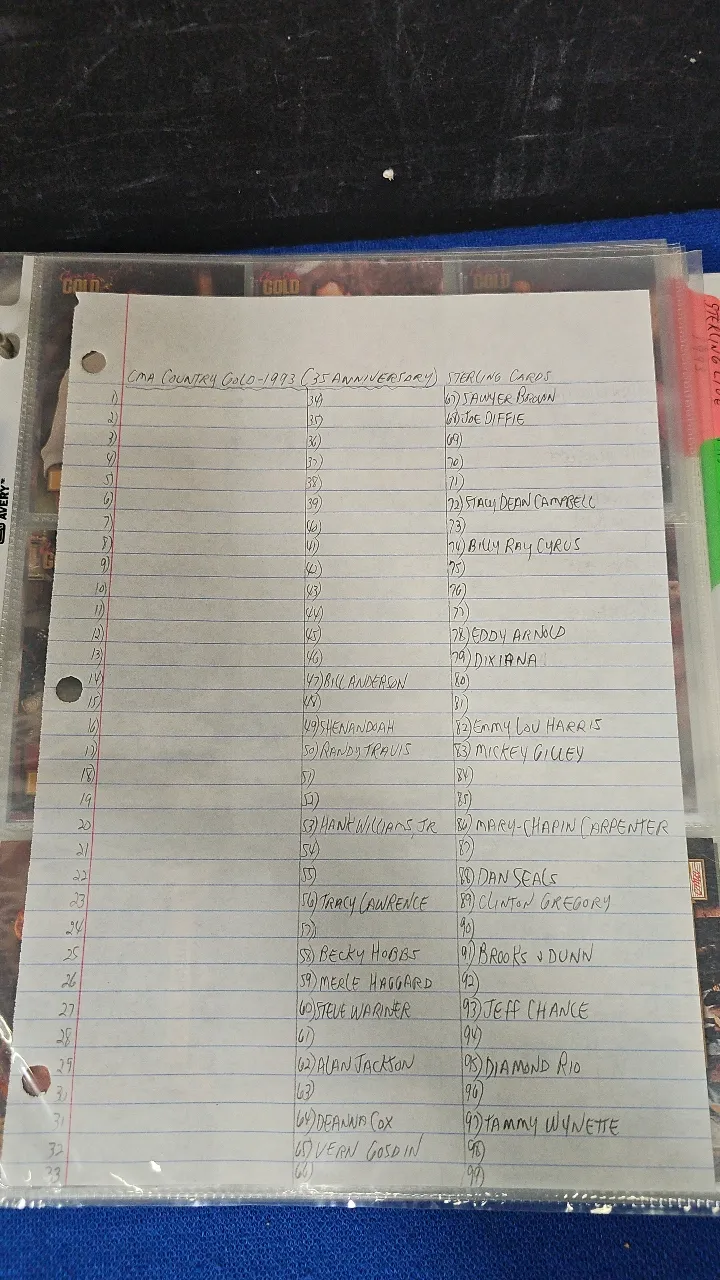 GOLD GOLD GOLD
STERLING
AVERY
CMA COUNTRY GOLD-1993 (35 ANNIVERSORY) STERLING CARDS
1) 34) 67) SAWYER BROWN
2) 35) 68) JOE DIFFIE
3) 36) 69)
4) 37) 70)
5) 38) 71)
6) 39) 72) STACY DEAN CAMPBELL
7) 40) 73)
8) 41) 74) BILLY RAY CYRUS
9) 42) 75)
10) 43) 76)
11) 44) 77)
12) 45) 78) EDDY ARNOLD
13) 46) 79) DIXIANA
14) 47) BILL ANDERSON 80)
15) 48) 81)
16) 49) SHENANDOAH 82) EMMY LOU HARRIS
17) 50) RANDY TRAVIS 83) MICKEY GILLEY
18) 51) 84)
19 52) 85)
20 53) HANK WILLIAMS, JR 86) MARY-CHAPIN CARPENTER
21 54) 87)
22 55) 88) DAN SEALS
23 56) TRACY LAWRENCE 89) CLINTON GREGORY
24 57) 90)
25 58) BECKY HOBBS 91) BROOKS & DUNN
26 59) MERLE HAGGARD 92)
27 60) STEVE WARINER 93) JEFF CHANCE
28 61) 94)
29 62) ALAN JACKSON 95) DIAMOND RIO
30 63) 96)
31 64) DEANNA COX 97) TAMMY WYNETTE
32 65) VERN GOSDIN 98)
33 66) 99)